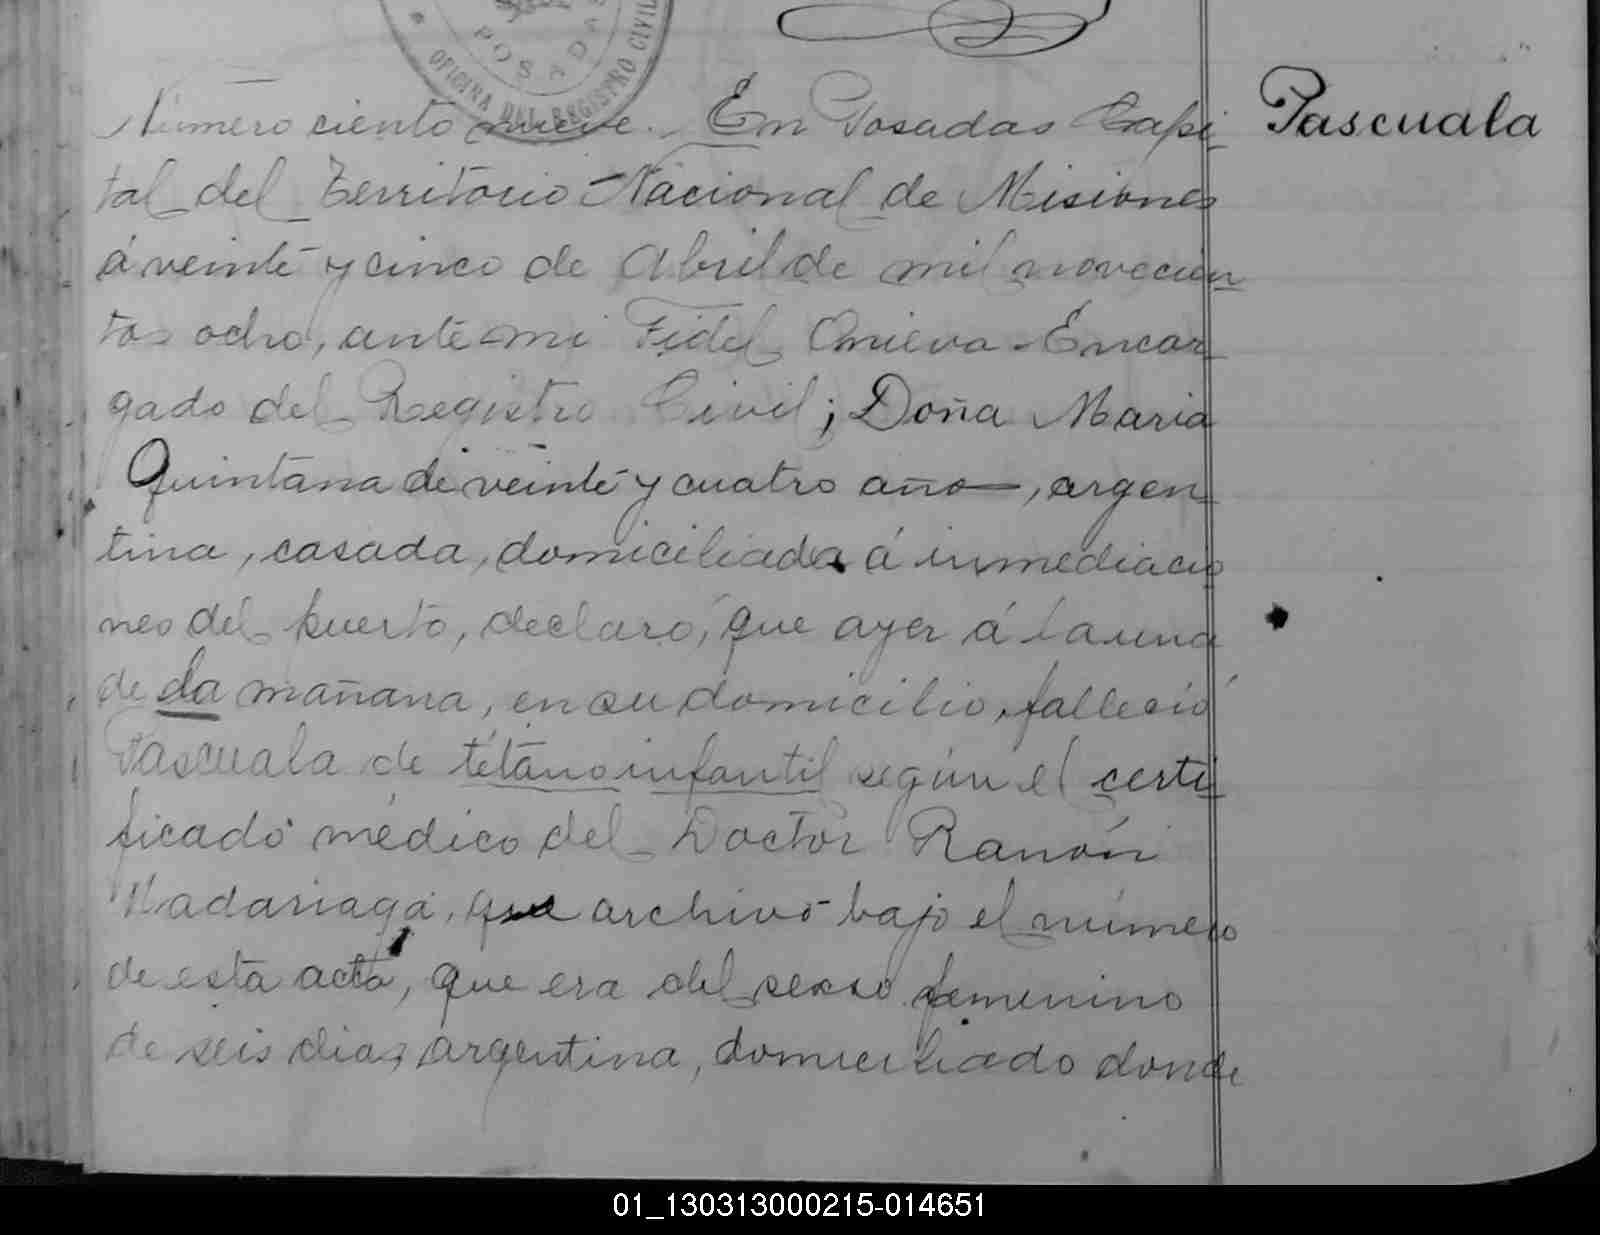 POSADAS
OFICINA DEL REGISTRO CIVIL
Número ciento nueve. En Posadas Capi-
Pascuala
tal del Territorio Nacional de Misiones
á veinte y cinco de Abril de mil novecien-
tos ocho, ante mi Fidel Onieva Encar-
gado del Registro Civil; Doña Maria
Quintana de veinte y cuatro año, argen-
tina, casada, domiciliada á inmediacio
nes del puerto, declaró, que ayer á la una
de la mañana, en su domicilio, falleció
Pascuala de tétano infantil según el certi-
ficado médico del Doctor Ramón
Madariaga, que archivo bajo el número
de esta acta, que era del sexso femenino
de seis dias, argentina, domiciliado donde
01_130313000215-014651